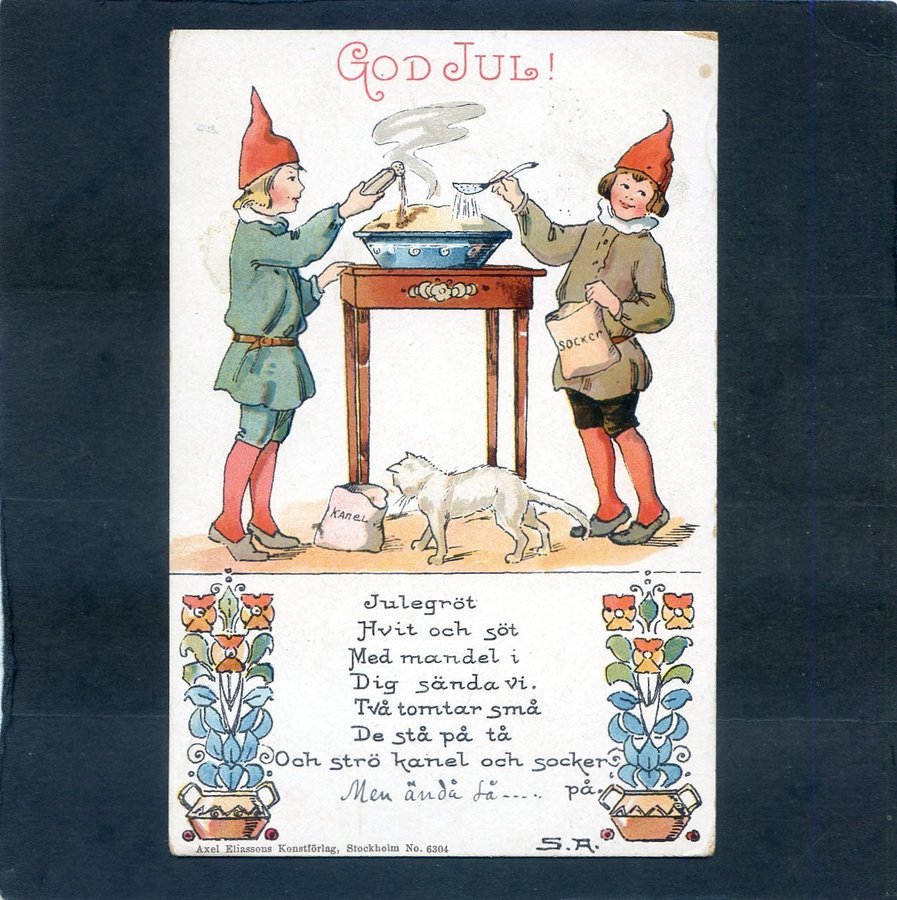 GOD JUL!
SOCKER
KANEL
Julegröt
Hvit och söt
Med mandel i
Dig sända vi.
Två tomtar små
De stå på tå
Och strö kanel och socker
på.
Men ändå så----.
Axel Eliassons Konstförlag, Stockholm No. 6304
S.A.